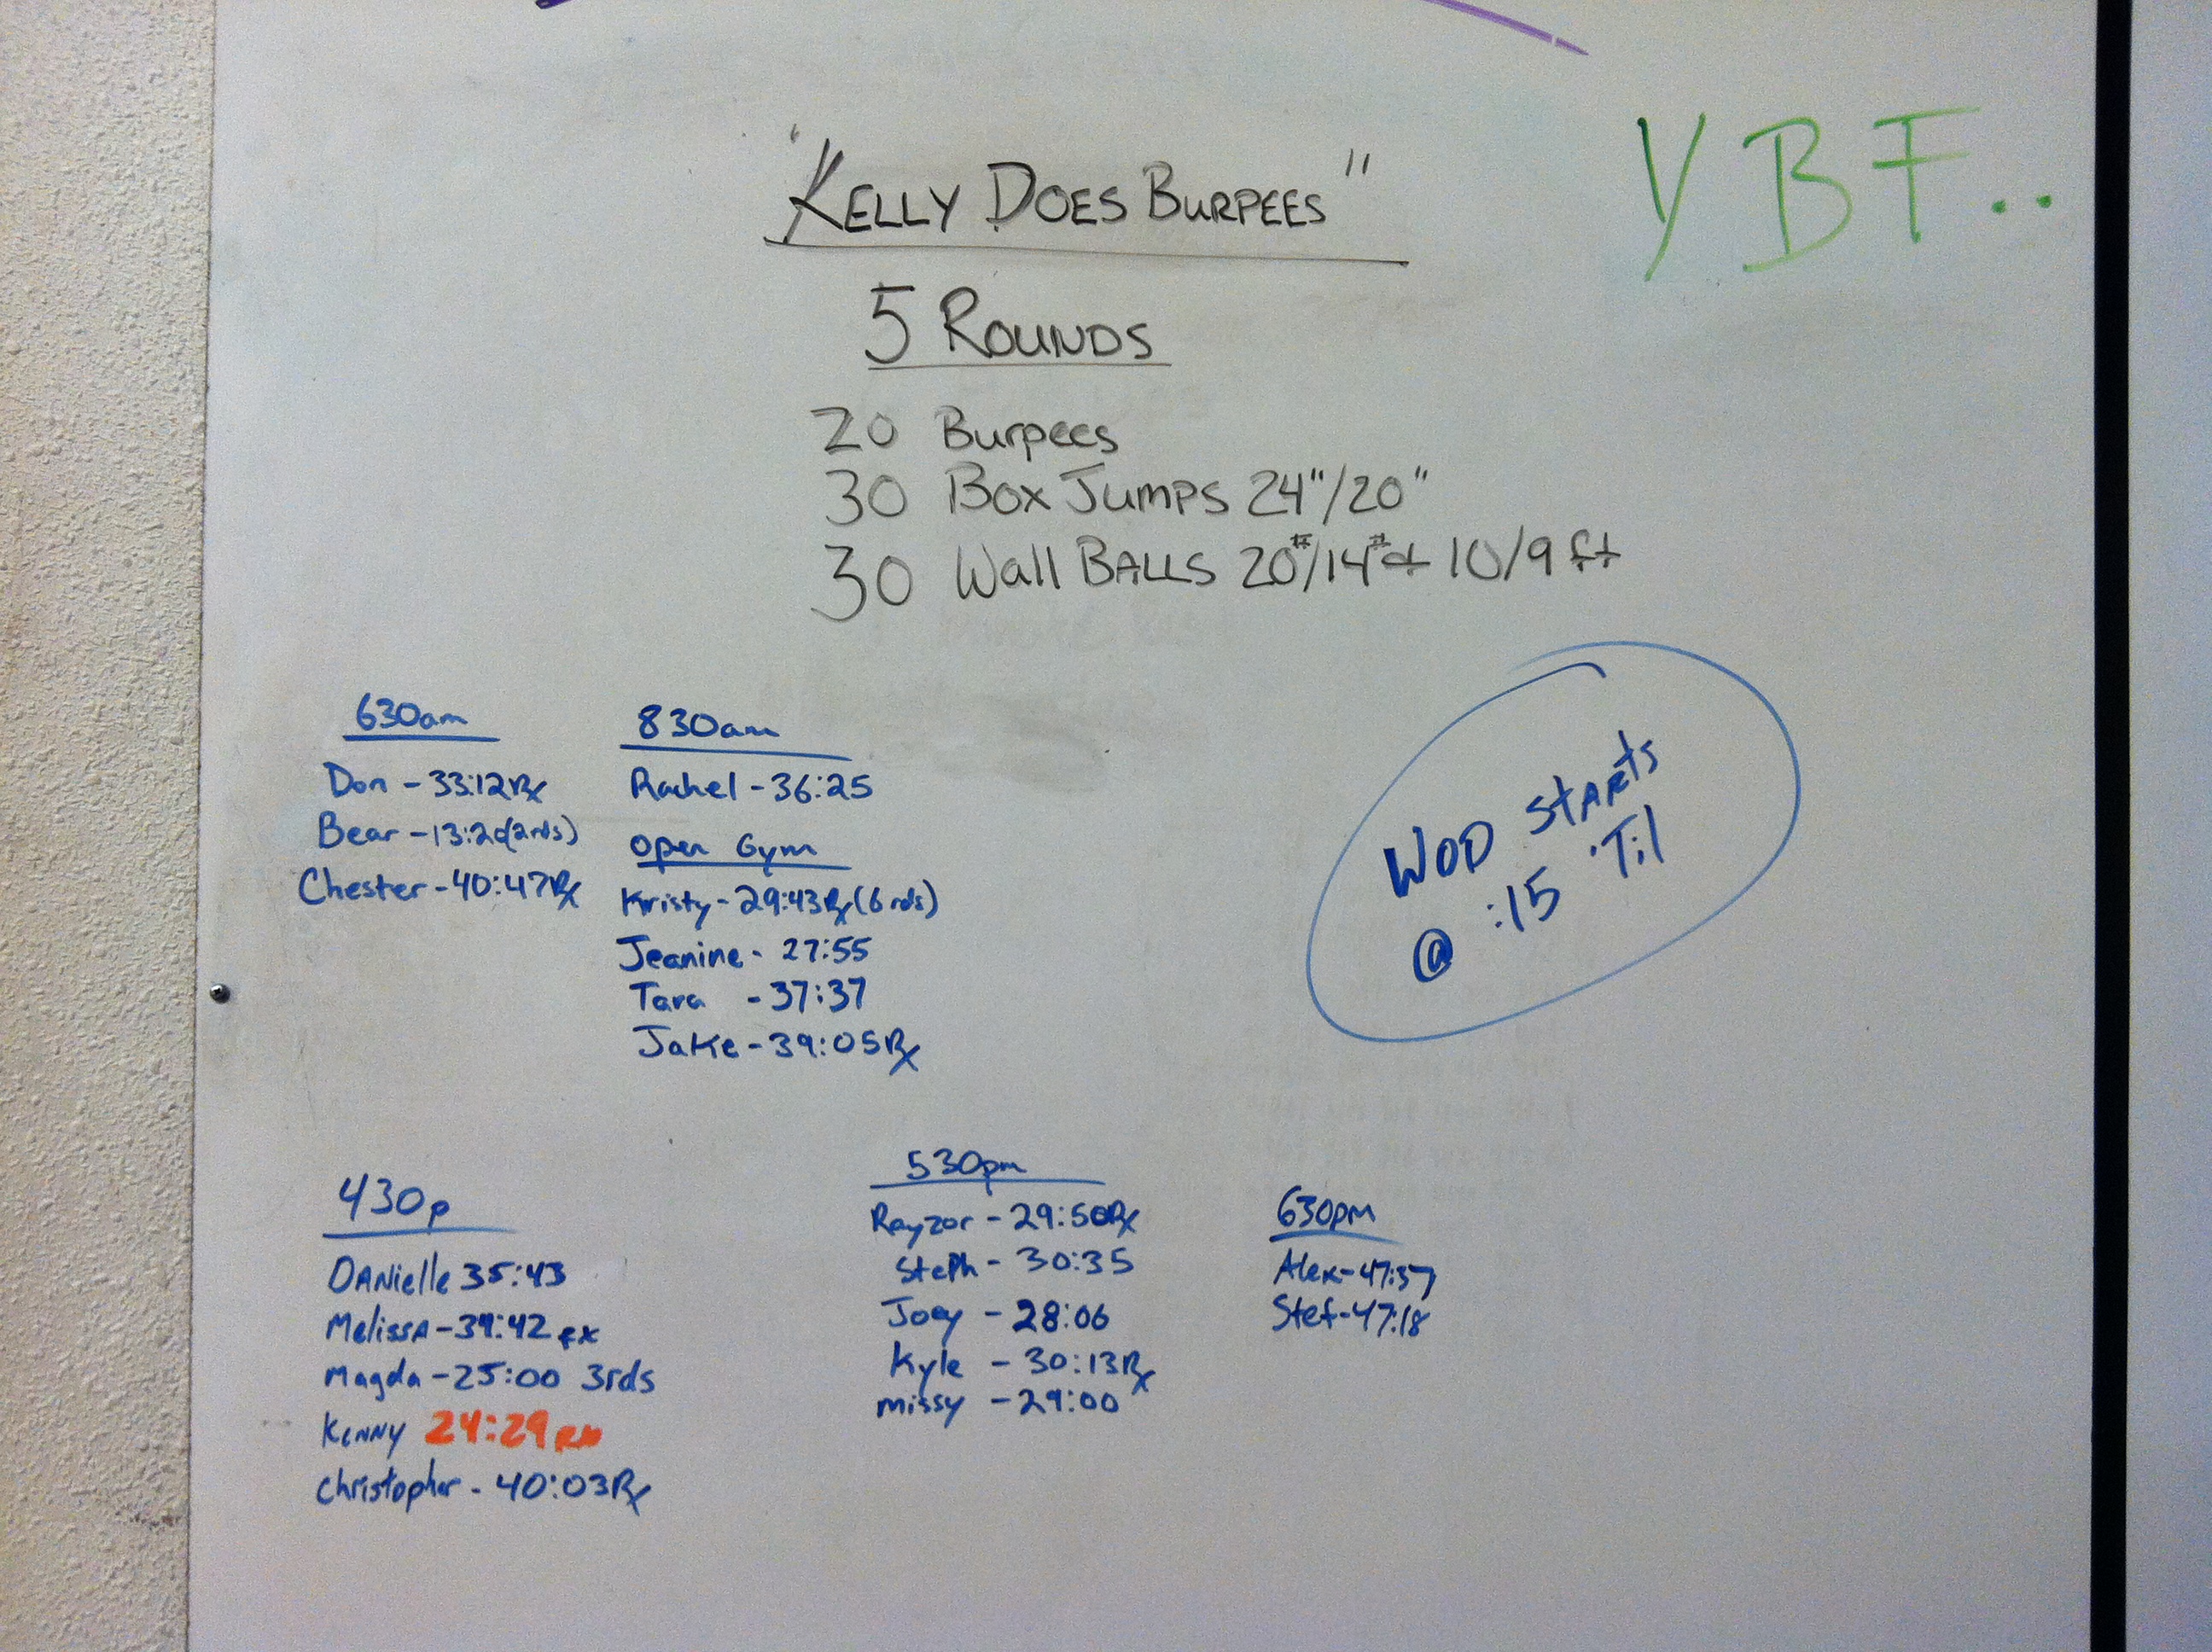 "KELLY DOES BURPEES"
YBF..
5 ROUNDS
20 Burpees
30 Box Jumps 24"/20"
30 Wall BALLS 20#/14# @ 10/9 ft
630am
Don - 33:12 Rx
Bear - 13:20 (2rds)
Chester - 40:47 Rx
830am
Rachel - 36:25
Open Gym
Kristy - 29:43 Rx (6 rds)
Jeanine - 27:55
Tara - 37:37
Jake - 39:05 Rx
WOD STARTS
@ :15 'Til
430p
DANielle 35:43
MelissA - 39:42 RX
Magda - 25:00 3rds
KENNY 24:29 RX
Christopher - 40:03 Rx
530pm
Rayzor - 29:50 Rx
Steph - 30:35
Joey - 28:06
Kyle - 30:13 Rx
missy - 29:00
630pm
Alex - 47:37
Stef - 47:18